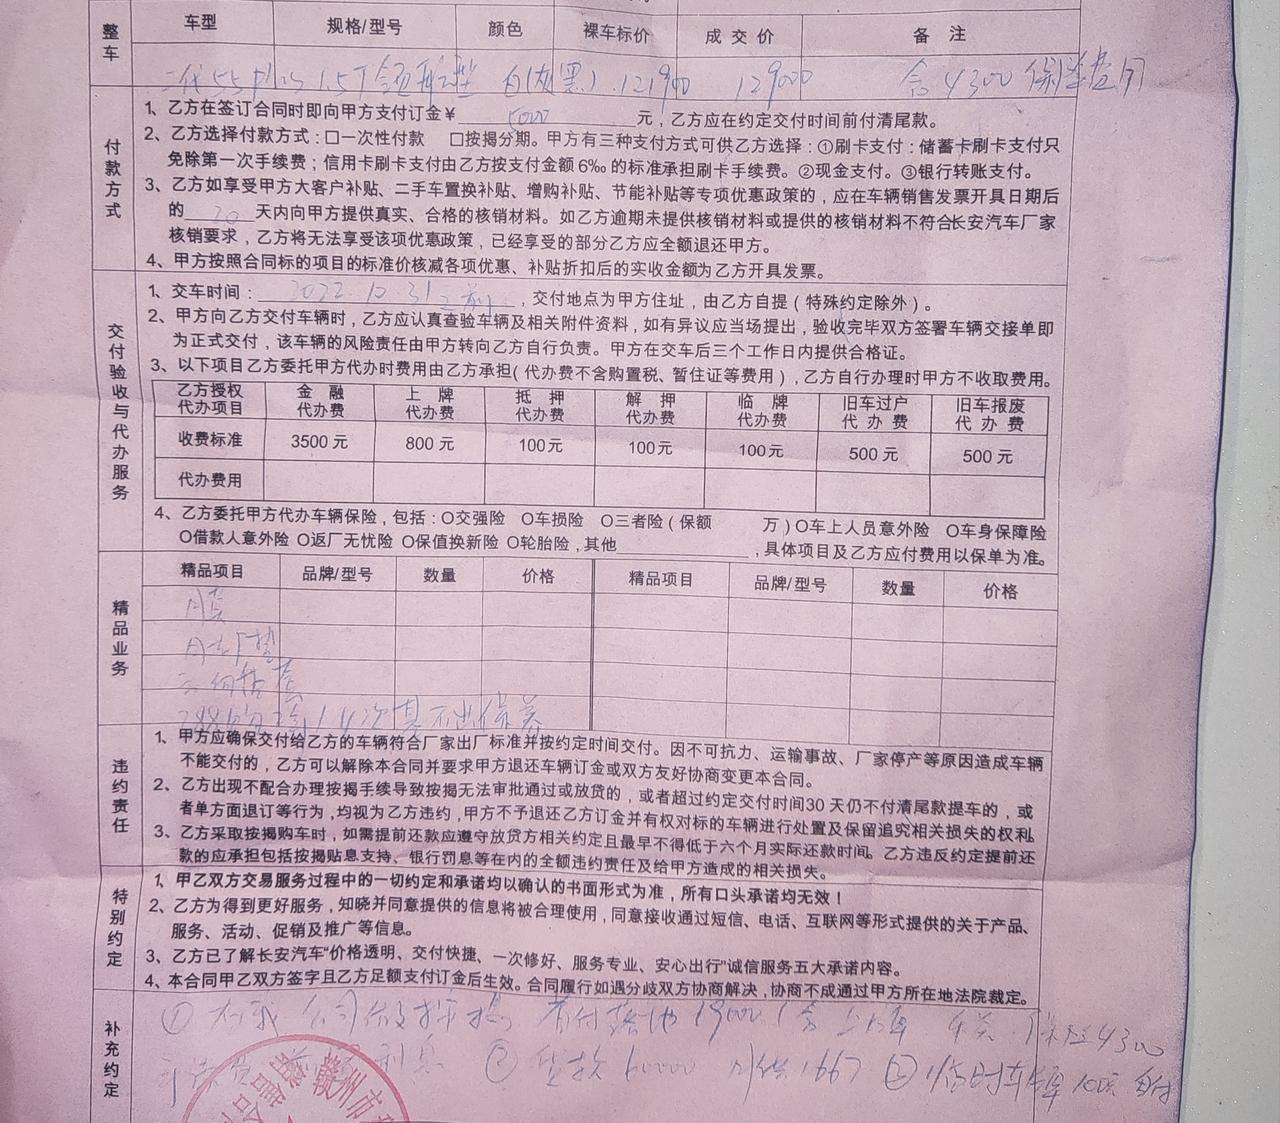 整车
车型 规格/型号 颜色 裸车标价 成交价 备注
二代55 1.5T 领航型 白(灰黑) 121900 129000 含4300保险费用
付款方式
1、乙方在签订合同时即向甲方支付订金¥ 5000 元，乙方应在约定交付时间前付清尾款。
2、乙方选择付款方式：□一次性付款 □按揭分期。甲方有三种支付方式可供乙方选择：①刷卡支付：储蓄卡刷卡支付只
免除第一次手续费；信用卡刷卡支付由乙方按支付金额6‰的标准承担刷卡手续费。②现金支付。③银行转账支付。
3、乙方如享受甲方大客户补贴、二手车置换补贴、增购补贴、节能补贴等专项优惠政策的，应在车辆销售发票开具日期后
的 20 天内向甲方提供真实、合格的核销材料。如乙方逾期未提供核销材料或提供的核销材料不符合长安汽车厂家
核销要求，乙方将无法享受该项优惠政策，已经享受的部分乙方应全额退还甲方。
4、甲方按照合同标的项目的标准价核减各项优惠、补贴折扣后的实收金额为乙方开具发票。
交付验收与代办服务
1、交车时间：2022.10.31之前，交付地点为甲方住址，由乙方自提（特殊约定除外）。
2、甲方向乙方交付车辆时，乙方应认真查验车辆及相关附件资料，如有异议应当场提出，验收完毕双方签署车辆交接单即
为正式交付，该车辆的风险责任由甲方转向乙方自行负责。甲方在交车后三个工作日内提供合格证。
3、以下项目乙方委托甲方代办时费用由乙方承担（代办费不含购置税、暂住证等费用），乙方自行办理时甲方不收取费用。
乙方授权代办项目 金融代办费 上牌代办费 抵押代办费 解押代办费 临牌代办费 旧车过户代办费 旧车报废代办费
收费标准 3500元 800元 100元 100元 100元 500元 500元
代办费用
4、乙方委托甲方代办车辆保险，包括：O交强险 O车损险 O三者险（保额 万）O车上人员意外险 O车身保障险
O借款人意外险 O返厂无忧险 O保值换新险 O轮胎险，其他 ，具体项目及乙方应付费用以保单为准。
精品业务
精品项目 品牌/型号 数量 价格 精品项目 品牌/型号 数量 价格
违约责任
1、甲方应确保交付给乙方的车辆符合厂家出厂标准并按约定时间交付。因不可抗力、运输事故、厂家停产等原因造成车辆
不能交付的，乙方可以解除本合同并要求甲方退还车辆订金或双方友好协商变更本合同。
2、乙方出现不配合办理按揭手续导致按揭无法审批通过或放贷的，或者超过约定交付时间30天仍不付清尾款提车的，或
者单方面退订等行为，均视为乙方违约，甲方不予退还乙方订金并有权对标的车辆进行处置及保留追究相关损失的权利。
3、乙方采取按揭购车时，如需提前还款应遵守放贷方相关约定且最早不得低于六个月实际还款时间。乙方违反约定提前还
款的应承担包括按揭贴息支持、银行罚息等在内的全额违约责任及给甲方造成的相关损失。
特别约定
1、甲乙双方交易服务过程中的一切约定和承诺均以确认的书面形式为准，所有口头承诺均无效！
2、乙方为得到更好服务，知晓并同意提供的信息将被合理使用，同意接收通过短信、电话、互联网等形式提供的关于产品、
服务、活动、促销及推广等信息。
3、乙方已了解长安汽车“价格透明、交付快捷、一次修好、服务专业、安心出行”诚信服务五大承诺内容。
4、本合同甲乙双方签字且乙方足额支付订金后生效。合同履行如遇分歧双方协商解决，协商不成通过甲方所在地法院裁定。
补充约定
① 在我公司做按揭 首付落地 79000 保险4300
② 贷款60000 月供1667 ③ 临时车牌100元 自付
赣州市